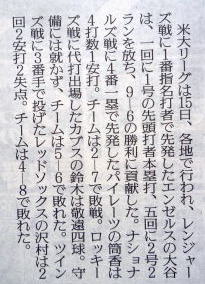 米大リーグは15日、各地で行われ、レンジャー
ズ戦に１番指名打者で先発したエンゼルスの大谷
は、一回に１号の先頭打者本塁打、五回に２号２
ランを放ち、９―６の勝利に貢献した。ナショナ
ルズ戦に４番一塁で先発したパイレーツの筒香は
４打数１安打。チームは２―７で敗戦。ロッキー
ズ戦に代打出場したカブスの鈴木は敬遠四球。守
備には就かず、チームは５―６で敗れた。ツイン
ズ戦に３番手で投げたレッドソックスの沢村は２
回２安打２失点。チームは４―８で敗れた。